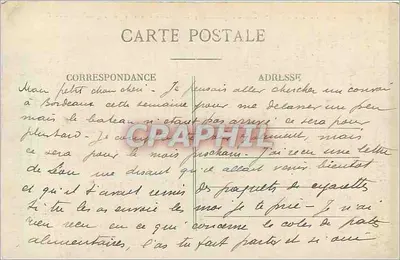 CARTE POSTALE
CORRESPONDANCE
ADRESSE
Mon petit chou chéri - Je pensais aller chercher un convoi
à Bordeaux cette semaine pour me délasser un peu
mais le bateau n'étant pas arrivé ce sera pour
plus tard. Je mais
ce sera pour le mois prochain. J'ai reçu une lettre
de Léon me disant qu'il allait venir bientôt
et qu'il t'avait remis des paquets de cigarettes
Si tu les as envoie les moi je te prie - Je n'ai
rien reçu en ce qui concerne le colis de pâtes
alimentaires, l'as tu fait partir et si oui
CPAPHIL